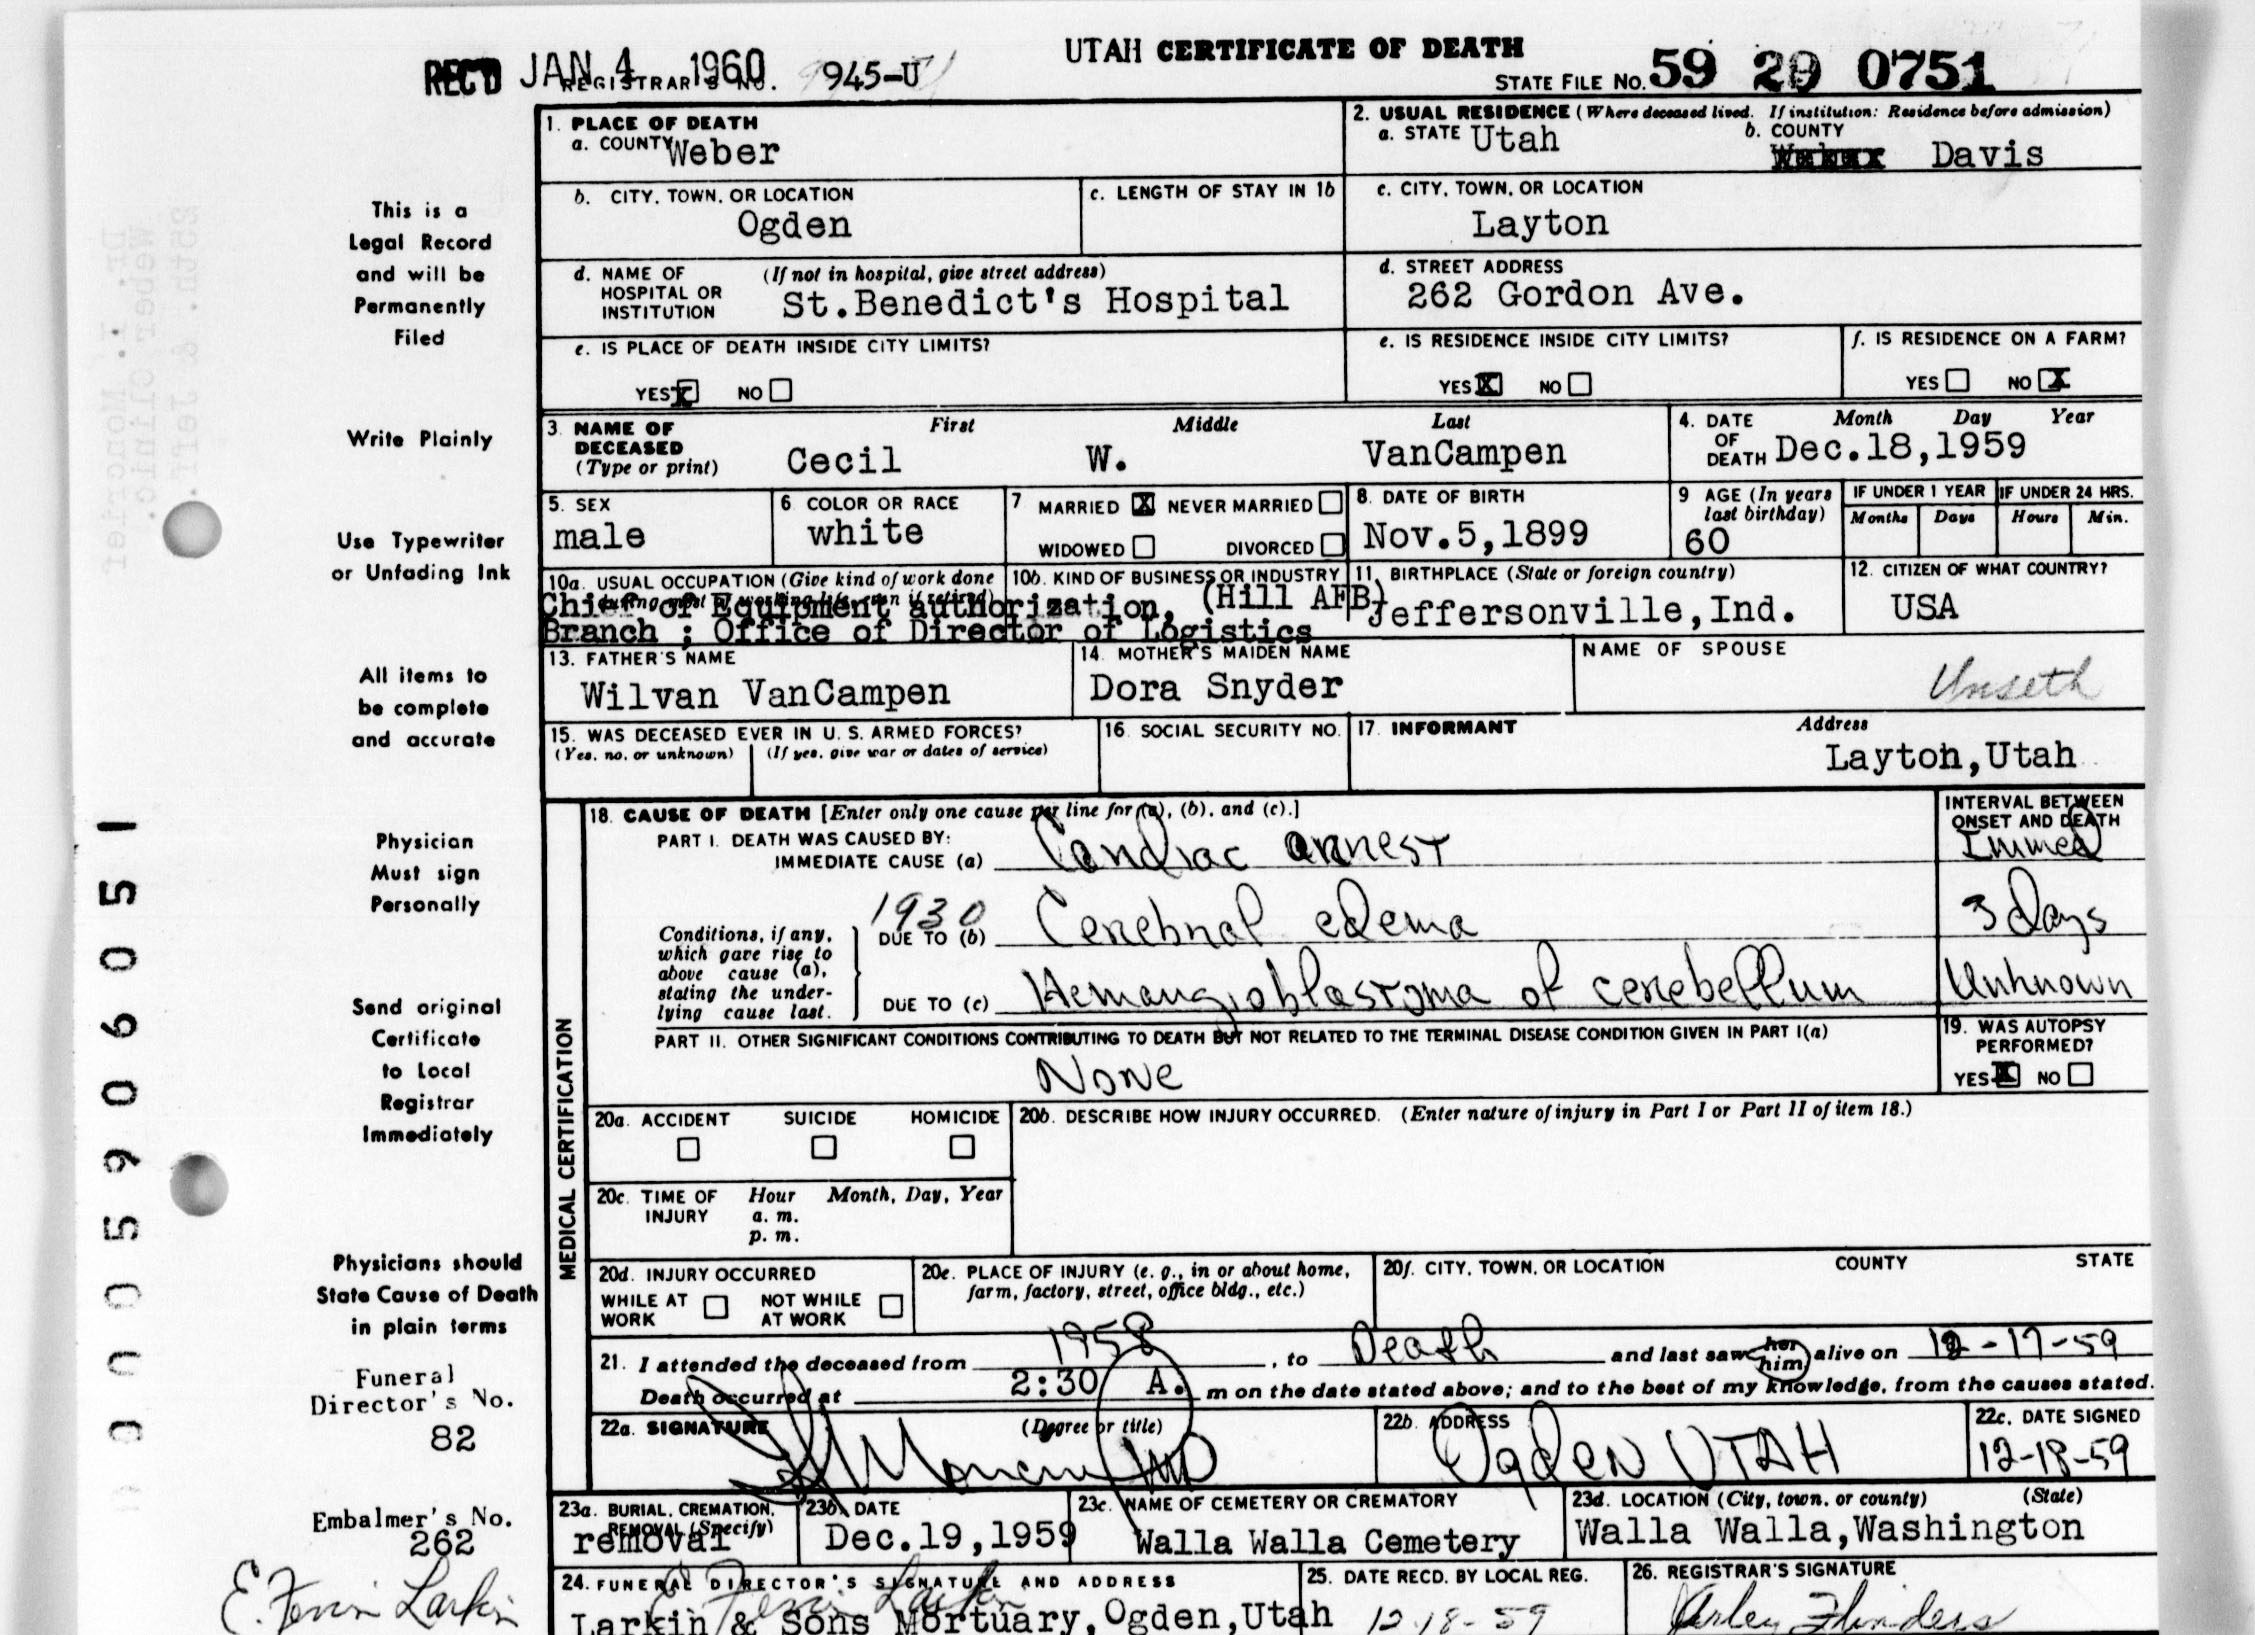 UTAH CERTIFICATE OF DEATH
REC'D JAN 4 1960 REGISTRAR'S NO. 945-U STATE FILE No. 59 29 0751
1. PLACE OF DEATH
a. COUNTY Weber
2. USUAL RESIDENCE (Where deceased lived. If institution: Residence before admission)
a. STATE Utah b. COUNTY Davis
b. CITY, TOWN, OR LOCATION Ogden
c. LENGTH OF STAY IN 1b
c. CITY, TOWN, OR LOCATION Layton
d. NAME OF HOSPITAL OR INSTITUTION (If not in hospital, give street address)
St.Benedict's Hospital
d. STREET ADDRESS
262 Gordon Ave.
e. IS PLACE OF DEATH INSIDE CITY LIMITS?
YES X NO
e. IS RESIDENCE INSIDE CITY LIMITS?
YES X NO
f. IS RESIDENCE ON A FARM?
YES NO X
3. NAME OF DECEASED (Type or print) First Middle Last
Cecil W. VanCampen
4. DATE OF DEATH Month Day Year
Dec.18,1959
5. SEX
male
6 COLOR OR RACE
white
7 MARRIED X NEVER MARRIED
WIDOWED DIVORCED
8. DATE OF BIRTH
Nov.5,1899
9 AGE (In years last birthday)
60
IF UNDER 1 YEAR IF UNDER 24 HRS.
Months Days Hours Min.
10a. USUAL OCCUPATION (Give kind of work done during most of working life, even if retired)
10b. KIND OF BUSINESS OR INDUSTRY
Chief of Equipment authorization, (Hill AFB)
Branch ; Office of Director of Logistics
11. BIRTHPLACE (State or foreign country)
Jeffersonville,Ind.
12. CITIZEN OF WHAT COUNTRY?
USA
13. FATHER'S NAME
Wilvan VanCampen
14. MOTHER'S MAIDEN NAME
Dora Snyder
NAME OF SPOUSE
Unseth
15. WAS DECEASED EVER IN U. S. ARMED FORCES?
(Yes, no, or unknown) (If yes, give war or dates of service)
16. SOCIAL SECURITY NO.
17. INFORMANT Address
Layton,Utah
MEDICAL CERTIFICATION
18. CAUSE OF DEATH [Enter only one cause per line for (a), (b), and (c).]
INTERVAL BETWEEN ONSET AND DEATH
PART I. DEATH WAS CAUSED BY:
IMMEDIATE CAUSE (a) Cardiac arrest Immed
1930
Conditions, if any, which gave rise to above cause (a), stating the underlying cause last.
DUE TO (b) Cerebral edema 3 days
DUE TO (c) Hemangioblastoma of cerebellum Unknown
PART II. OTHER SIGNIFICANT CONDITIONS CONTRIBUTING TO DEATH BUT NOT RELATED TO THE TERMINAL DISEASE CONDITION GIVEN IN PART I(a)
None
19. WAS AUTOPSY PERFORMED?
YES X NO
20a. ACCIDENT SUICIDE HOMICIDE
20b. DESCRIBE HOW INJURY OCCURRED. (Enter nature of injury in Part I or Part II of item 18.)
20c. TIME OF INJURY Hour Month, Day, Year
a. m.
p. m.
20d. INJURY OCCURRED
WHILE AT WORK NOT WHILE AT WORK
20e. PLACE OF INJURY (e. g., in or about home, farm, factory, street, office bldg., etc.)
20f. CITY, TOWN, OR LOCATION COUNTY STATE
21. I attended the deceased from 1958, to Death and last saw her him alive on 12-17-59
Death occurred at 2:30 A. m on the date stated above; and to the best of my knowledge, from the causes stated.
22a. SIGNATURE (Degree or title)
MD
22b. ADDRESS
Ogden UTAH
22c. DATE SIGNED
12-18-59
23a. BURIAL, CREMATION, REMOVAL (Specify)
removal
23b. DATE
Dec.19,1959
23c. NAME OF CEMETERY OR CREMATORY
Walla Walla Cemetery
23d. LOCATION (City, town, or county) (State)
Walla Walla,Washington
24. FUNERAL DIRECTOR'S SIGNATURE AND ADDRESS
Larkin & Sons Mortuary,Ogden,Utah
25. DATE RECD. BY LOCAL REG.
12-18-59
26. REGISTRAR'S SIGNATURE
Flinders
This is a
Legal Record
and will be
Permanently
Filed
Write Plainly
Use Typewriter
or Unfading Ink
All items to
be complete
and accurate
Physician
Must sign
Personally
Send original
Certificate
to Local
Registrar
Immediately
Physicians should
State Cause of Death
in plain terms
Funeral
Director's No.
82
Embalmer's No.
262
E. Larkin
0005906051